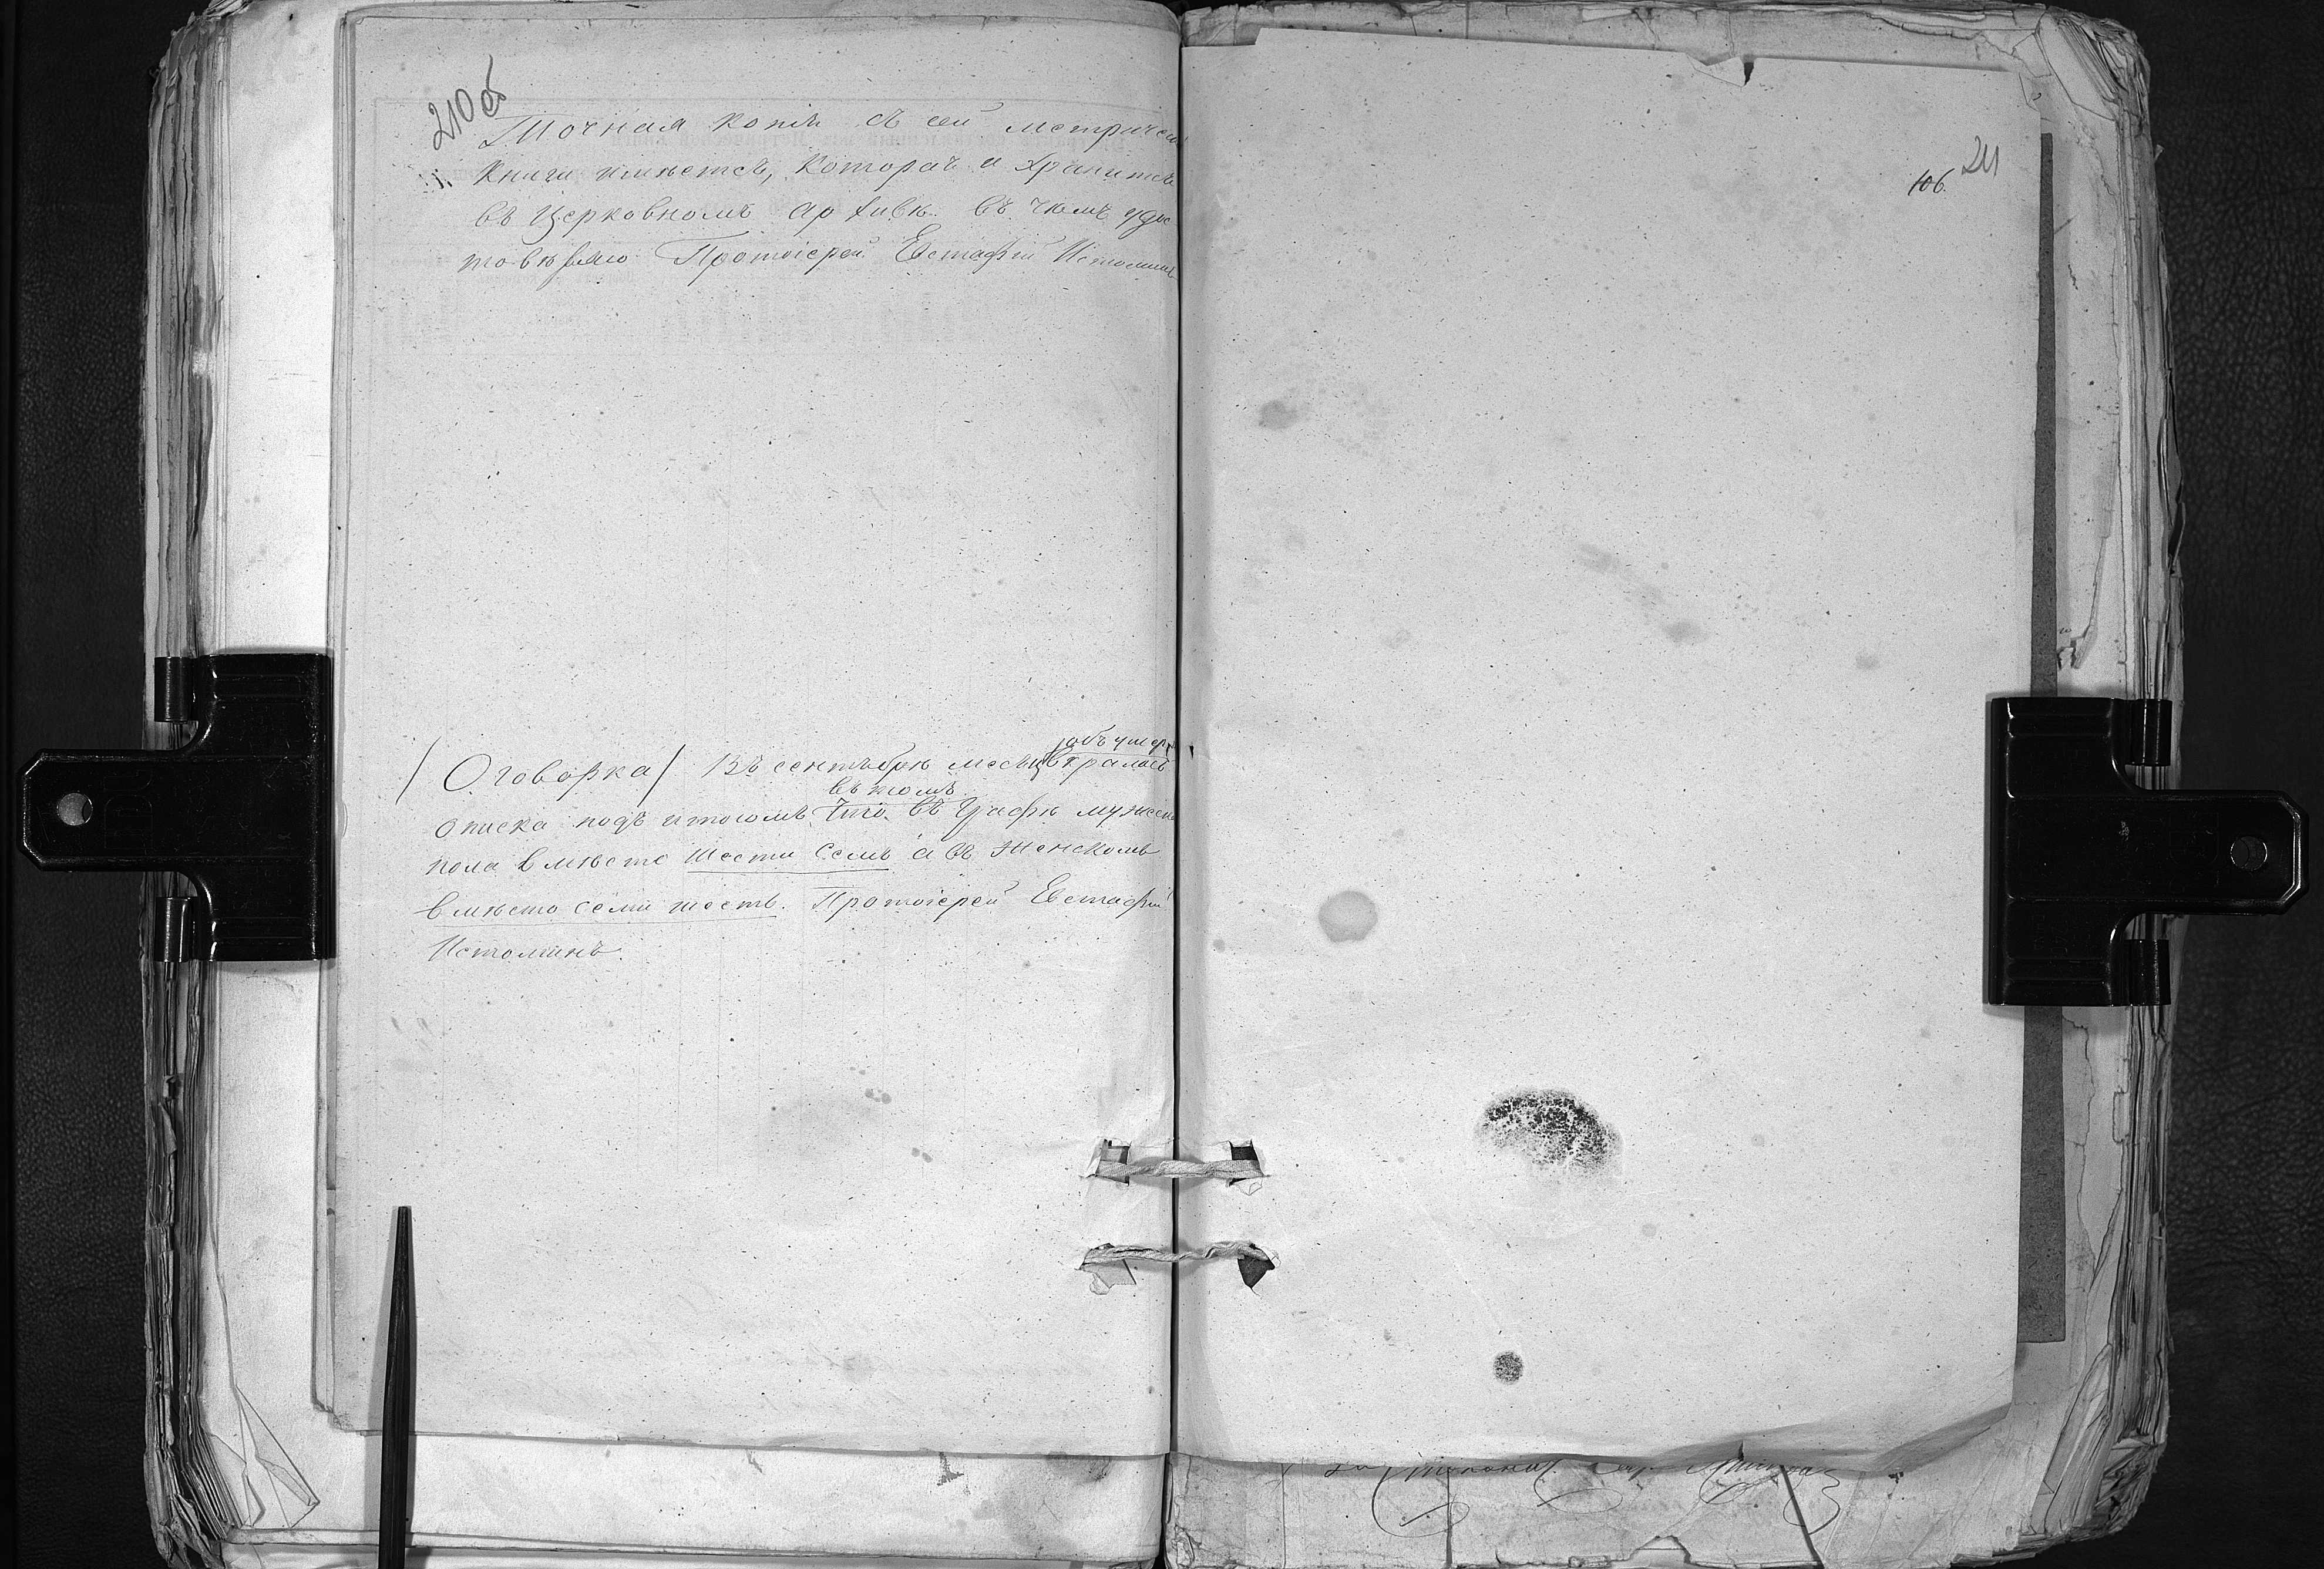 210об
Точная копія съ сей метрическ
книги имѣется, которая и хранится
въ церковномъ архивѣ. въ чемъ удос
товѣряю Протоіерей Евстафій Истомин
/Оговорка/ Въ сентябрѣ месяцѣ объ умер
вкралась
въ томъ
описка подъ итогомъ, что въ графѣ мужск
пола вмѣсто шести семь а въ женскомъ
вмѣсто семи шесть. Протоіерей Евстафій
Истоминъ.
211
106.